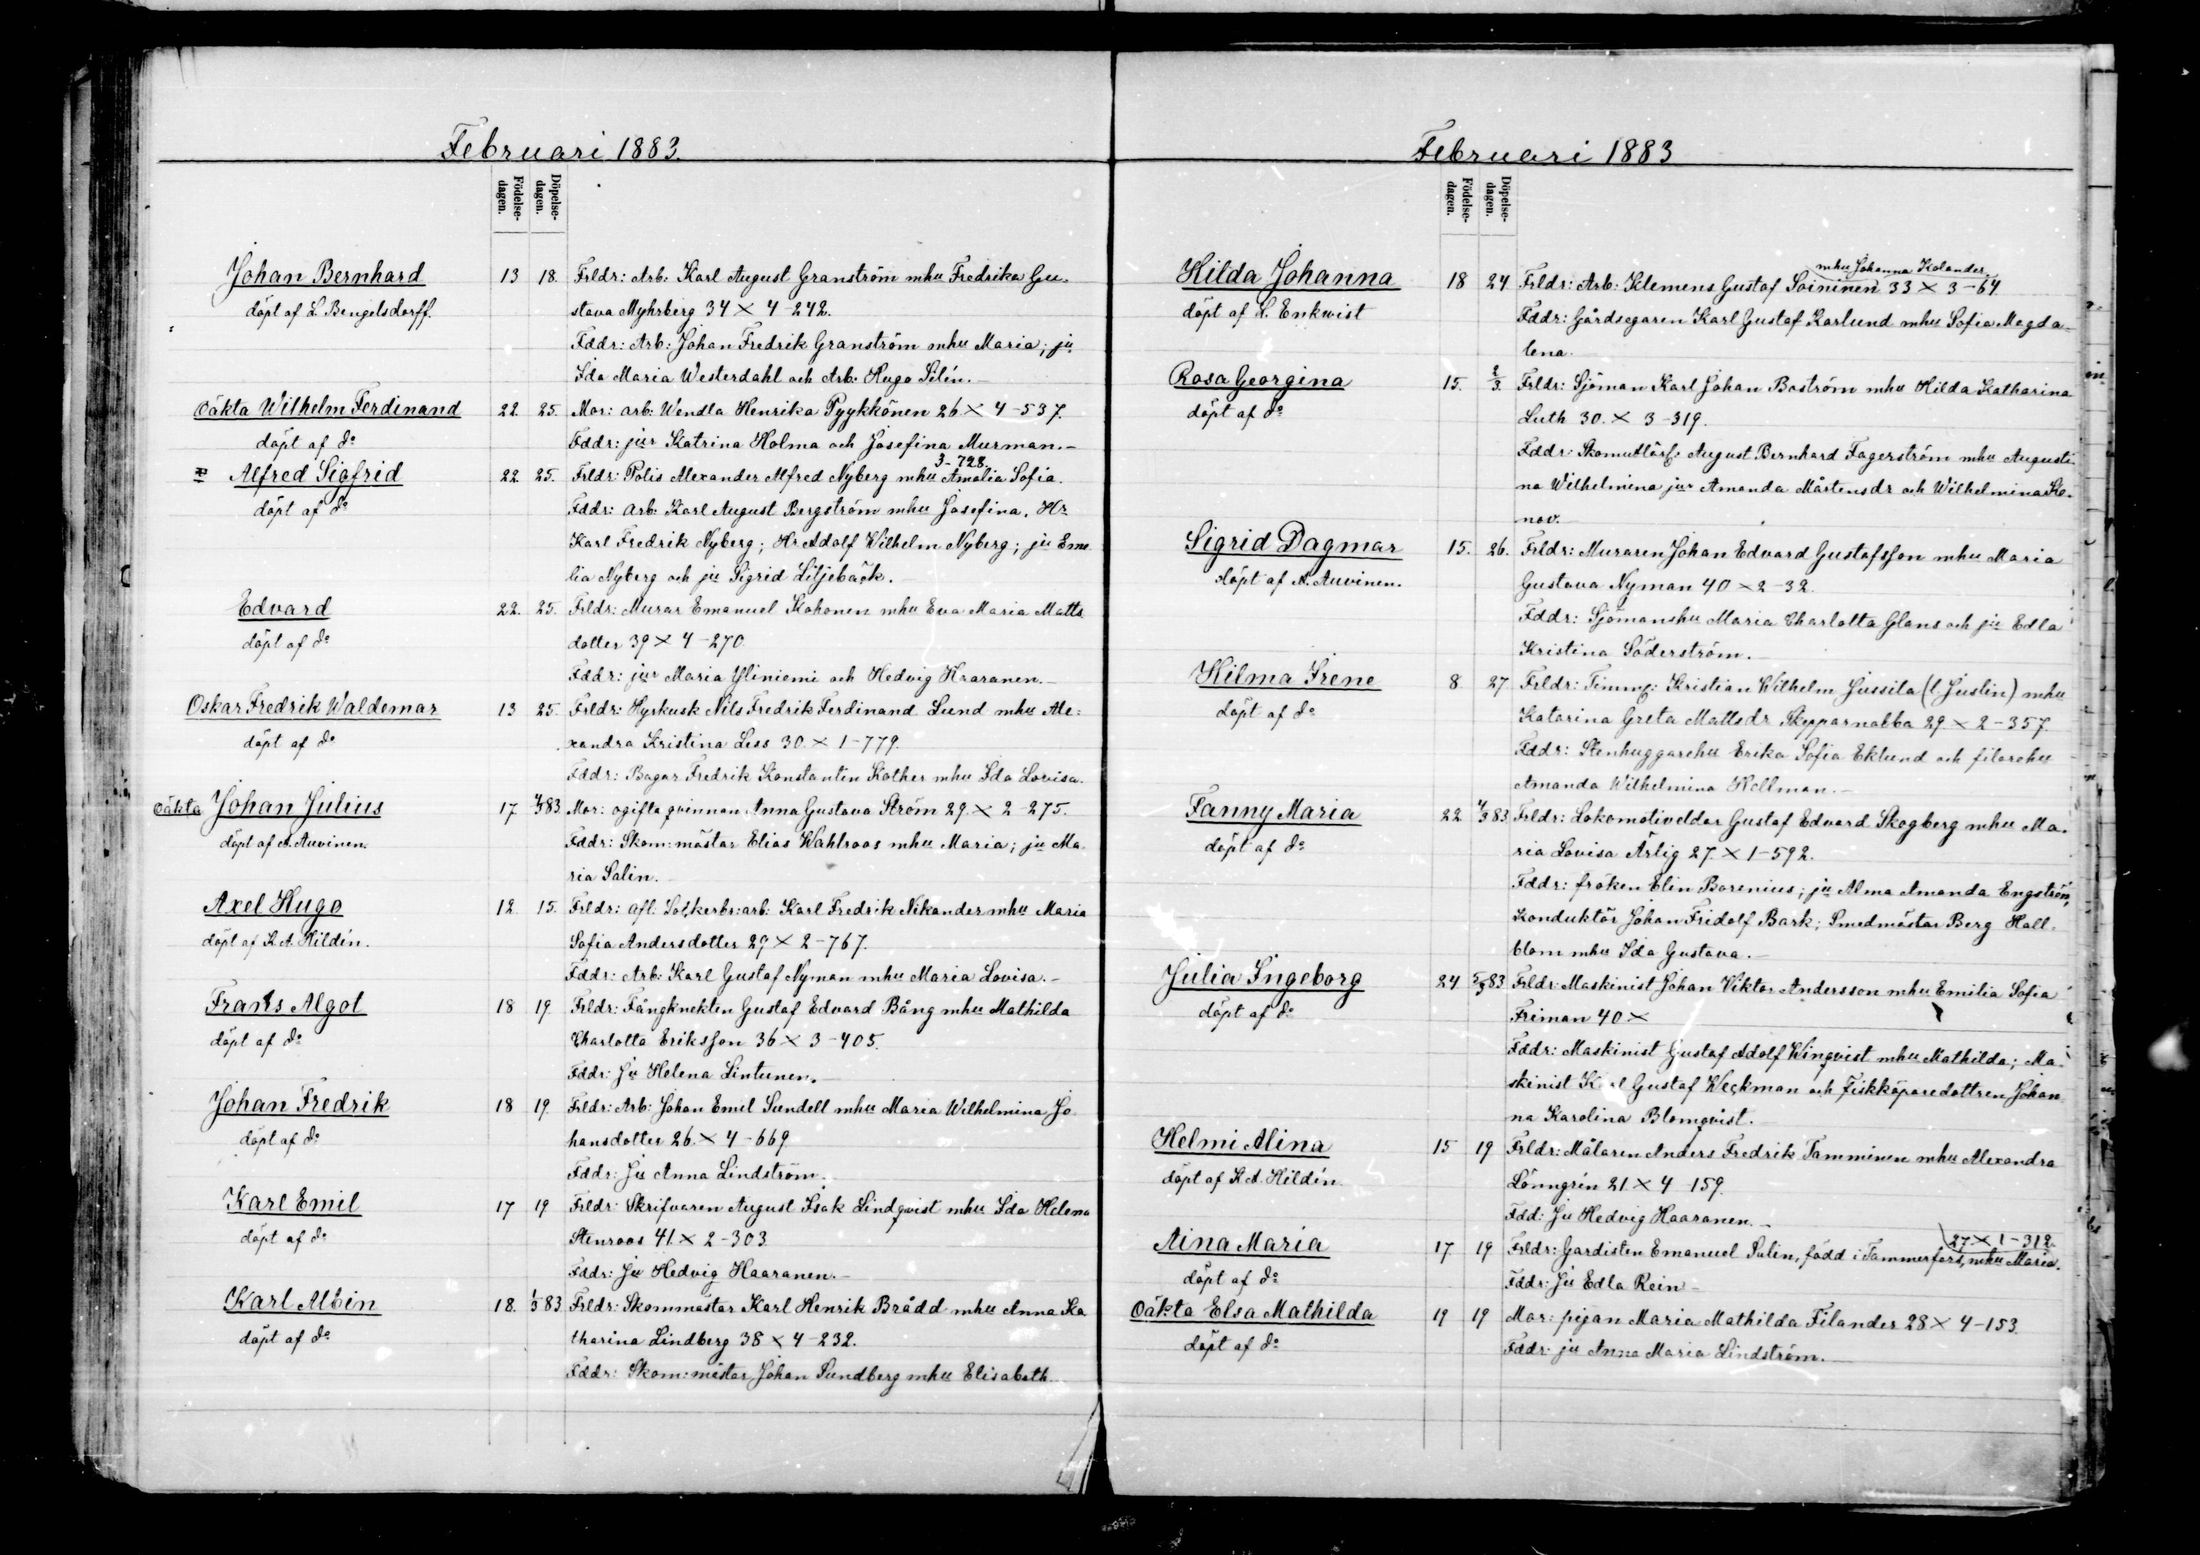 Februari 1883.
Födelse-
dagen.
Döpelse-
dagen.
Johan Bernhard 13 18. Frldr: Arb. Karl August Granström mhu Fredrika Gu-
döpt af L Bengelsdorff. stava Myhrberg 34 × 4-242.
Fddr: Arb: Johan Fredrik Granström mhu Maria; ju
Ida Maria Westerdahl och Arb. Hugo Silén.
oäkta Wilhelm Ferdinand 22. 25. Mor: arb: Wendla Henrika Pyykkönen 26 × 4-537.
döpt af do Fddr: jur Katrina Holma och Josefina Murman.
3-728
Alfred Sigfrid 22 25. Frldr: Polis Alexander Alfred Nyberg mhu Amalia Sofia.
döpt af do Fddr: Arb: Karl August Bergström mhu Josefina. Hr
Karl Fredrik Nyberg; Hr Adolf Wilhelm Nyberg; ju Eme
lia Nyberg och ju Sigrid Liljebäck.
Edvard 22. 25. Frldr: Murar Emanuel Kohonen mhu Eva Maria Matts
döpt af do dotter 39 × 4-270.
Fddr: jur Maria Yliniemi och Hedvig Haaranen.
Oskar Fredrik Waldemar 13 25. Frldr: Hyrkusk Nils Fredrik Ferdinand Lund mhu Ale-
döpt af do xandra Kristina Less 30. × 1-779.
Fddr: Bagar Fredrik Konstantin Kother mhu Ida Lovisa.
oäkta Johan Julius 17 4/3 83. Mor: ogifta qvinnan Anna Gustava Ström 29. × 2-275.
döpt af A. Auvinen. Fddr: Skom:mästar Elias Wahlroos mhu Maria; ju Ma
ria Salin.
Axel Hugo 12. 15. Frldr: afl. Sockerbr:arb: Karl Fredrik Nikander mhu Maria
döpt af K. A. Hildén. Sofia Andersdotter 29 × 2-767.
Fddr: Arb: Karl Gustaf Nyman mhu Maria Lovisa.
Frans Algot 18 19. Frldr: Fångknekten Gustaf Edvard Bång mhu Mathilda
döpt af do Charlotta Eriksson 36 × 3-405.
Fddr: Ju Helena Lintunen.
Johan Fredrik 18 19. Frldr: Arb: Johan Emil Sundell mhu Maria Wilhelmina Jo
döpt af do hansdotter 26. × 4-669
Fddr: Ju Anna Lindström.
Karl Emil 17 19 Frldr: Skrifvaren August Isak Lindqvist mhu Ida Helena
döpt af do Stenroos 41. × 2-303
Fddr: Ju Hedvig Haaranen.
Karl Albin 18. 1/3 83 Frldr: Skommästar Karl Henrik Brådd mhu Anna Ka
döpt af do tharina Lindberg 38 × 4-232.
Fddr: Skom:mästar Johan Sundberg mhu Elisabeth
Februari 1883
Födelse-
dagen.
Döpelse-
dagen.
mhu Johanna Kolander
Hilda Johanna 18 24 Frldr: Arb: Klemens Gustaf Soininen 33 × 3-64.
döpt af H. Enkvist Fddr: Gårdsegaren Karl Gustaf Karlund mhu Sofia Magda-
lena.
Rosa Georgina 15. 2/3. Frldr: Sjöman Karl Johan Boström mhu Hilda Katharina
döpt af do Luth 30. × 3-319.
Fddr: August Bernhard Fagerström mhu Augusti
na Wilhelmina jur Amanda Mårtensdr och Wilhelmina
nov.
Sigrid Dagmar 15. 26. Frldr: Muraren Johan Edvard Gustafsson mhu Maria
döpt af A. Auvinen. Gustava Nyman 40 × 2-32.
Fddr: Sjömanshu Maria Charlotta Glans och ju Edla
Kristina Söderström.
Hilma Irene 8 27 Frldr: Kristian Wilhelm Jussila (l. Juslin) mhu
döpt af do Katarina Greta Mattsdr Skepparnabba 29. × 2-357.
Fddr: Stenhuggarehu Erika Sofia Eklund och filarehu
Amanda Wilhelmina Hellman.
Fanny Maria 22 4/3 83 Frldr: Lokomotiveldar Gustaf Edvard Skogberg mhu Ma-
döpt af do ria Lovisa Ärlig 27. × 1-592.
Fddr: fröken Elin Borenius; ju Alma Amanda Engström,
Konduktör Johan Fridolf Bark; Smedmästar Berg Häll-
blom mhu Ida Gustava.
Julia Ingeborg 24 5/3 83 Frldr: Maskinist Johan Viktor Andersson mhu Emilia Sofia
döpt af do Friman 40 ×
Fddr: Maskinist Gustaf Adolf Winqvist mhu Mathilda; Ma-
skinist Karl Gustaf Weckman och Fiskköparedottren Johan
na Karolina Blomqvist.
Helmi Alina 15 19 Frldr: Målaren Anders Fredrik Tamminen mhu Alexandra
döpt af K. A. Hildén. Lönngrén 21. × 4-159.
Fdd: Ju Hedvig Haaranen.
27 × 1-312.
Aina Maria 17 19 Frldr: Gardisten Emanuel Salin, född i Tammerfors, mhu Maria.
döpt af do Fddr: Ju Edla Rein
Oäkta Elsa Mathilda 19 19 Mor: pigan Maria Mathilda Filander 28 × 4-153.
döpt af do Fddr: ju Anna Maria Lindström.